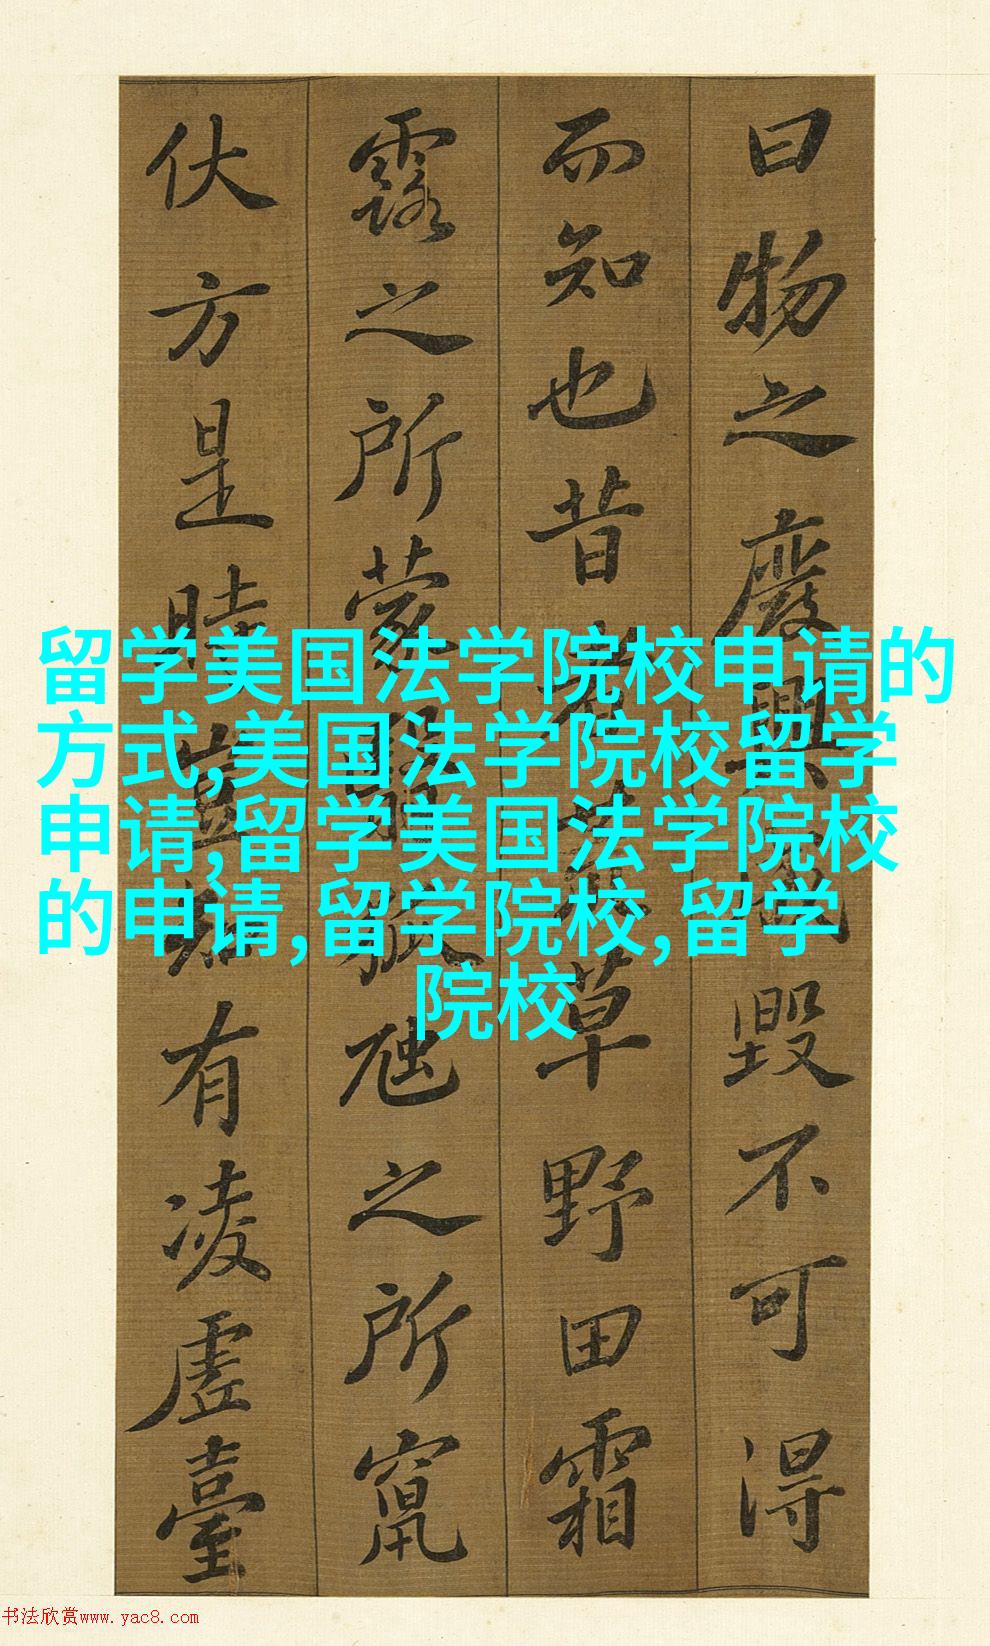 曰物之廢興成毀不可得
而知也昔者荒草野田霜
露之所蒙翳狐虺之所竄
伏方是時豈知有凌虛臺
留学美国法学院校申请的
方式,美国法学院校留学
申请,留学美国法学院校
的申请,留学院校,留学
院校
书法欣赏www.yac8.com